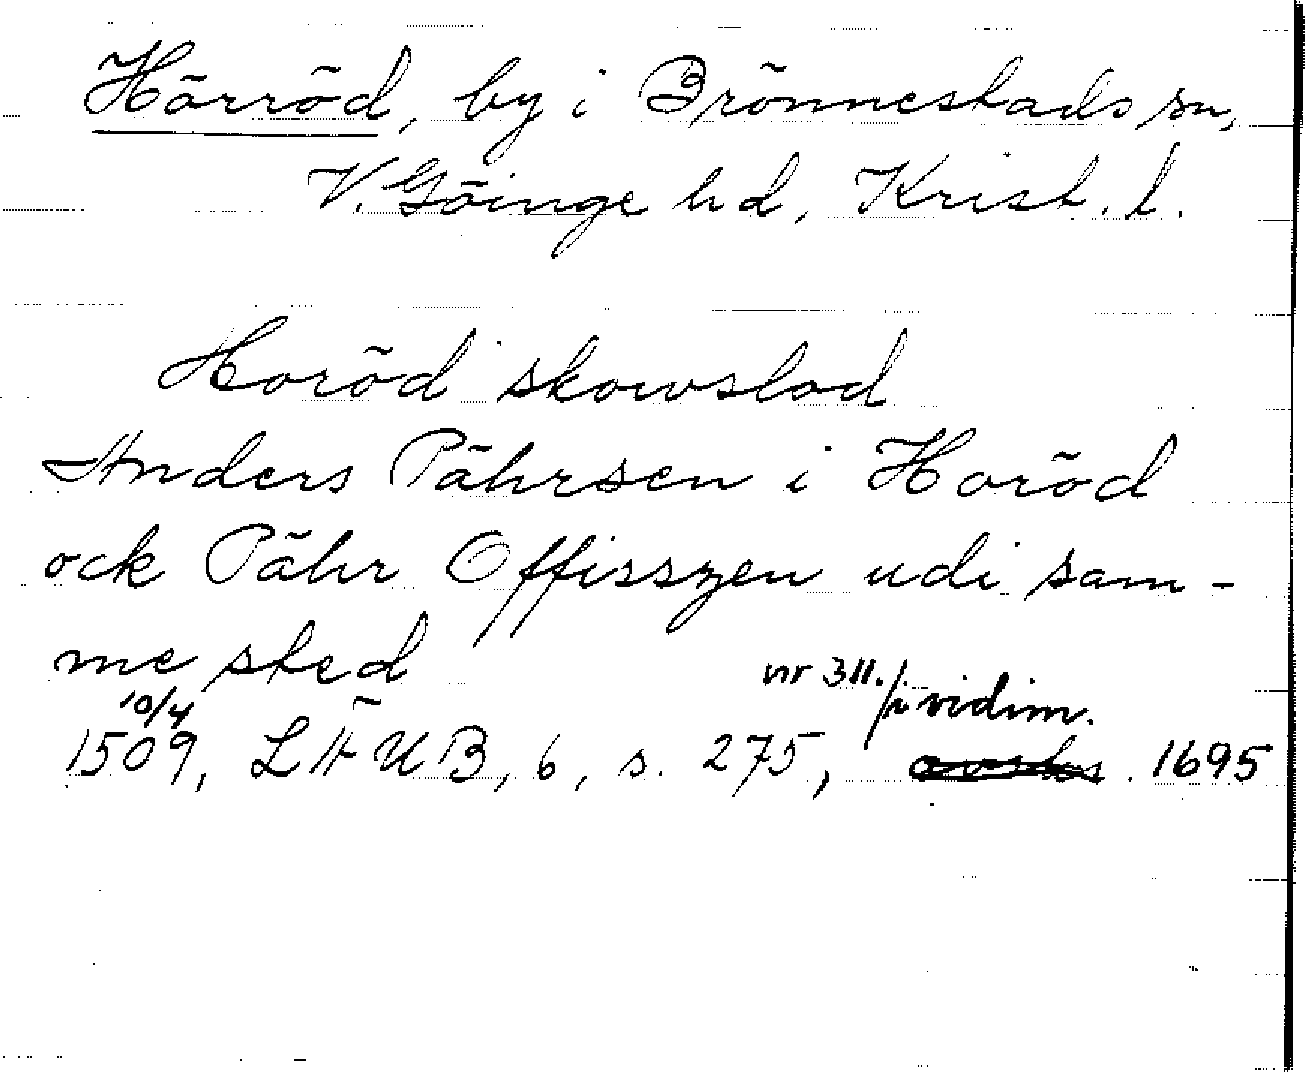 Hörröd, by i Brönnestads sn,
V. Göinge hd, Krist. l.
Horöd skowslod
Anders Pährsen i Horöd
ock Pähr Offisszen udi sam-
me sted
10/4 nr 311. /i vidim.
1509, LÄUB, 6, s. 275, 1695